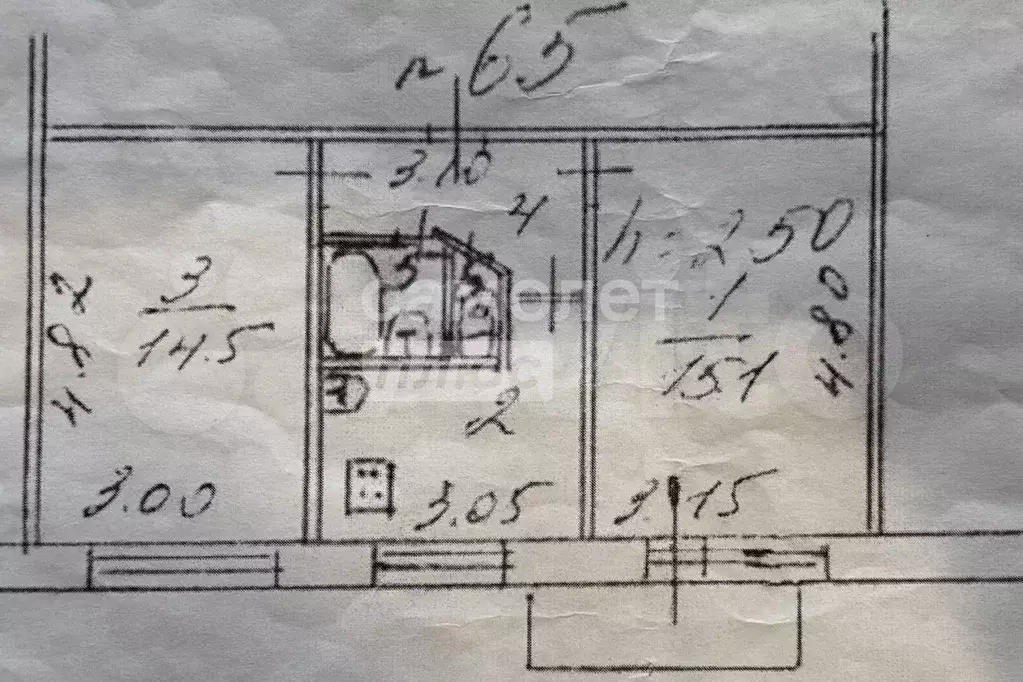 65
3.10
4
h=2.50
3
14.5
4.82
5
1
15.1
4.80
самолет
плюс
2
3.00
3.05
3.15